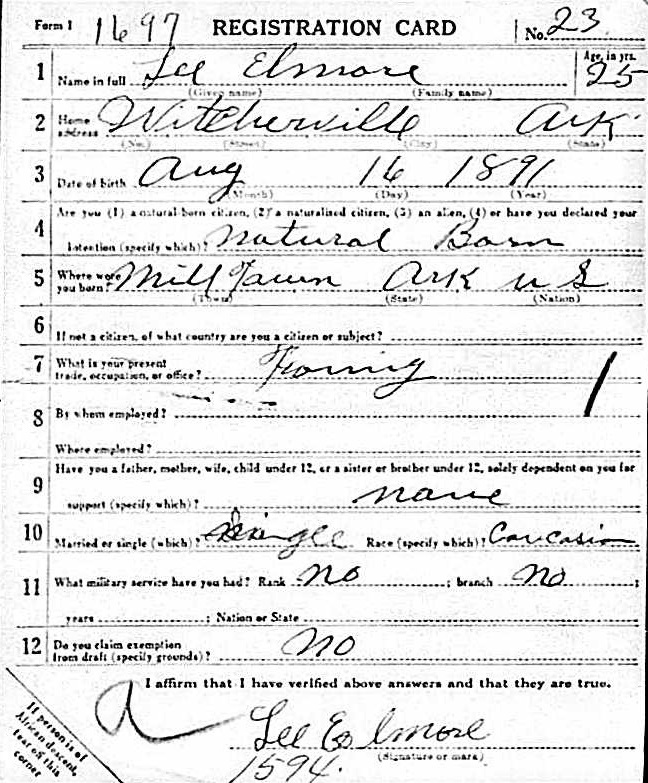 Form 1 1697 REGISTRATION CARD No. 23
1 Name in full Lee Elmore Age, in yrs. 25
(Given name) (Family name)
2 Home address Witcherville Ark
(No.) (Street) (City) (State)
3 Date of birth Aug 16 1891
(Month) (Day) (Year)
Are you (1) a natural-born citizen, (2) a naturalized citizen, (3) an alien, (4) or have you declared your
4 intention (specify which)? Natural Born
5 Where were you born? Mill Town Ark U S
(Town) (State) (Nation)
6 If not a citizen, of what country are you a citizen or subject?
7 What is your present trade, occupation, or office?
8 By whom employed?
Where employed?
9 Have you a father, mother, wife, child under 12, or a sister or brother under 12, solely dependent on you for
support (specify which)? none
10 Married or single (which)? Single Race (specify which)? Caucasian
11 What military service have you had? Rank no ; branch no ;
years ; Nation or State
12 Do you claim exemption from draft (specify grounds)? No
I affirm that I have verified above answers and that they are true.
Lee Elmore
(Signature or mark)
1594.
If person is of
African descent,
tear off this
corner